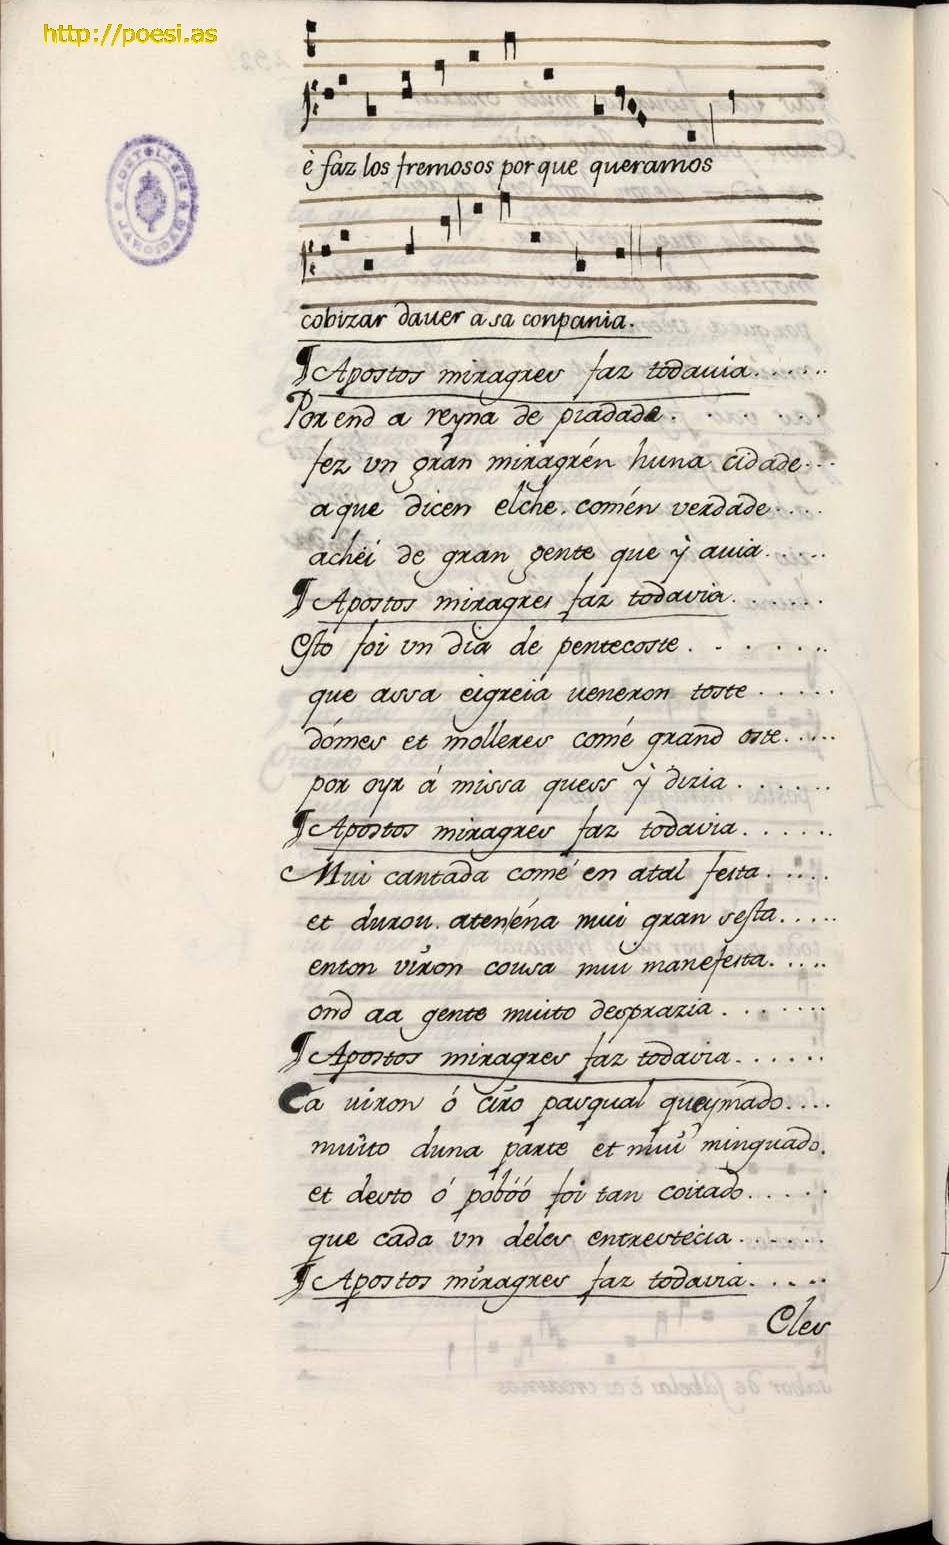 http://poesi.as
è faz los fremosos por que queramos
cobizar dauer a sa conpania.
¶ Apostos miragres faz todauia......
Por end a reyna de piadade.....
fez vn gran miragrén huna cidade...
a que dicen elche. comén verdade....
achéi de gran gente que ÿ auia.....
¶ Apostos miragres faz todavia......
Esto foi vn dia de pentecoste.......
que assa eigreia ueneron toste.....
dómes et molleres comé grand oste.....
por oyr á missa quess ÿ dizia.......
¶ Apostos miragres faz todavia......
Mui cantada comé en atal festa.....
et durou. atenéna mui gran sesta.....
enton viron cousa mui manefesta.....
ond aa gente muito desprazia.......
¶ Apostos miragres faz todavia......
Ca uiron ó cirio pasqual queymado....
muito duna parte et mui minguado.
et desto ó póbóó foi tan coitado.....
que cada vn deles entrestecia......
¶ Apostos miragres faz todavia.....
Cles